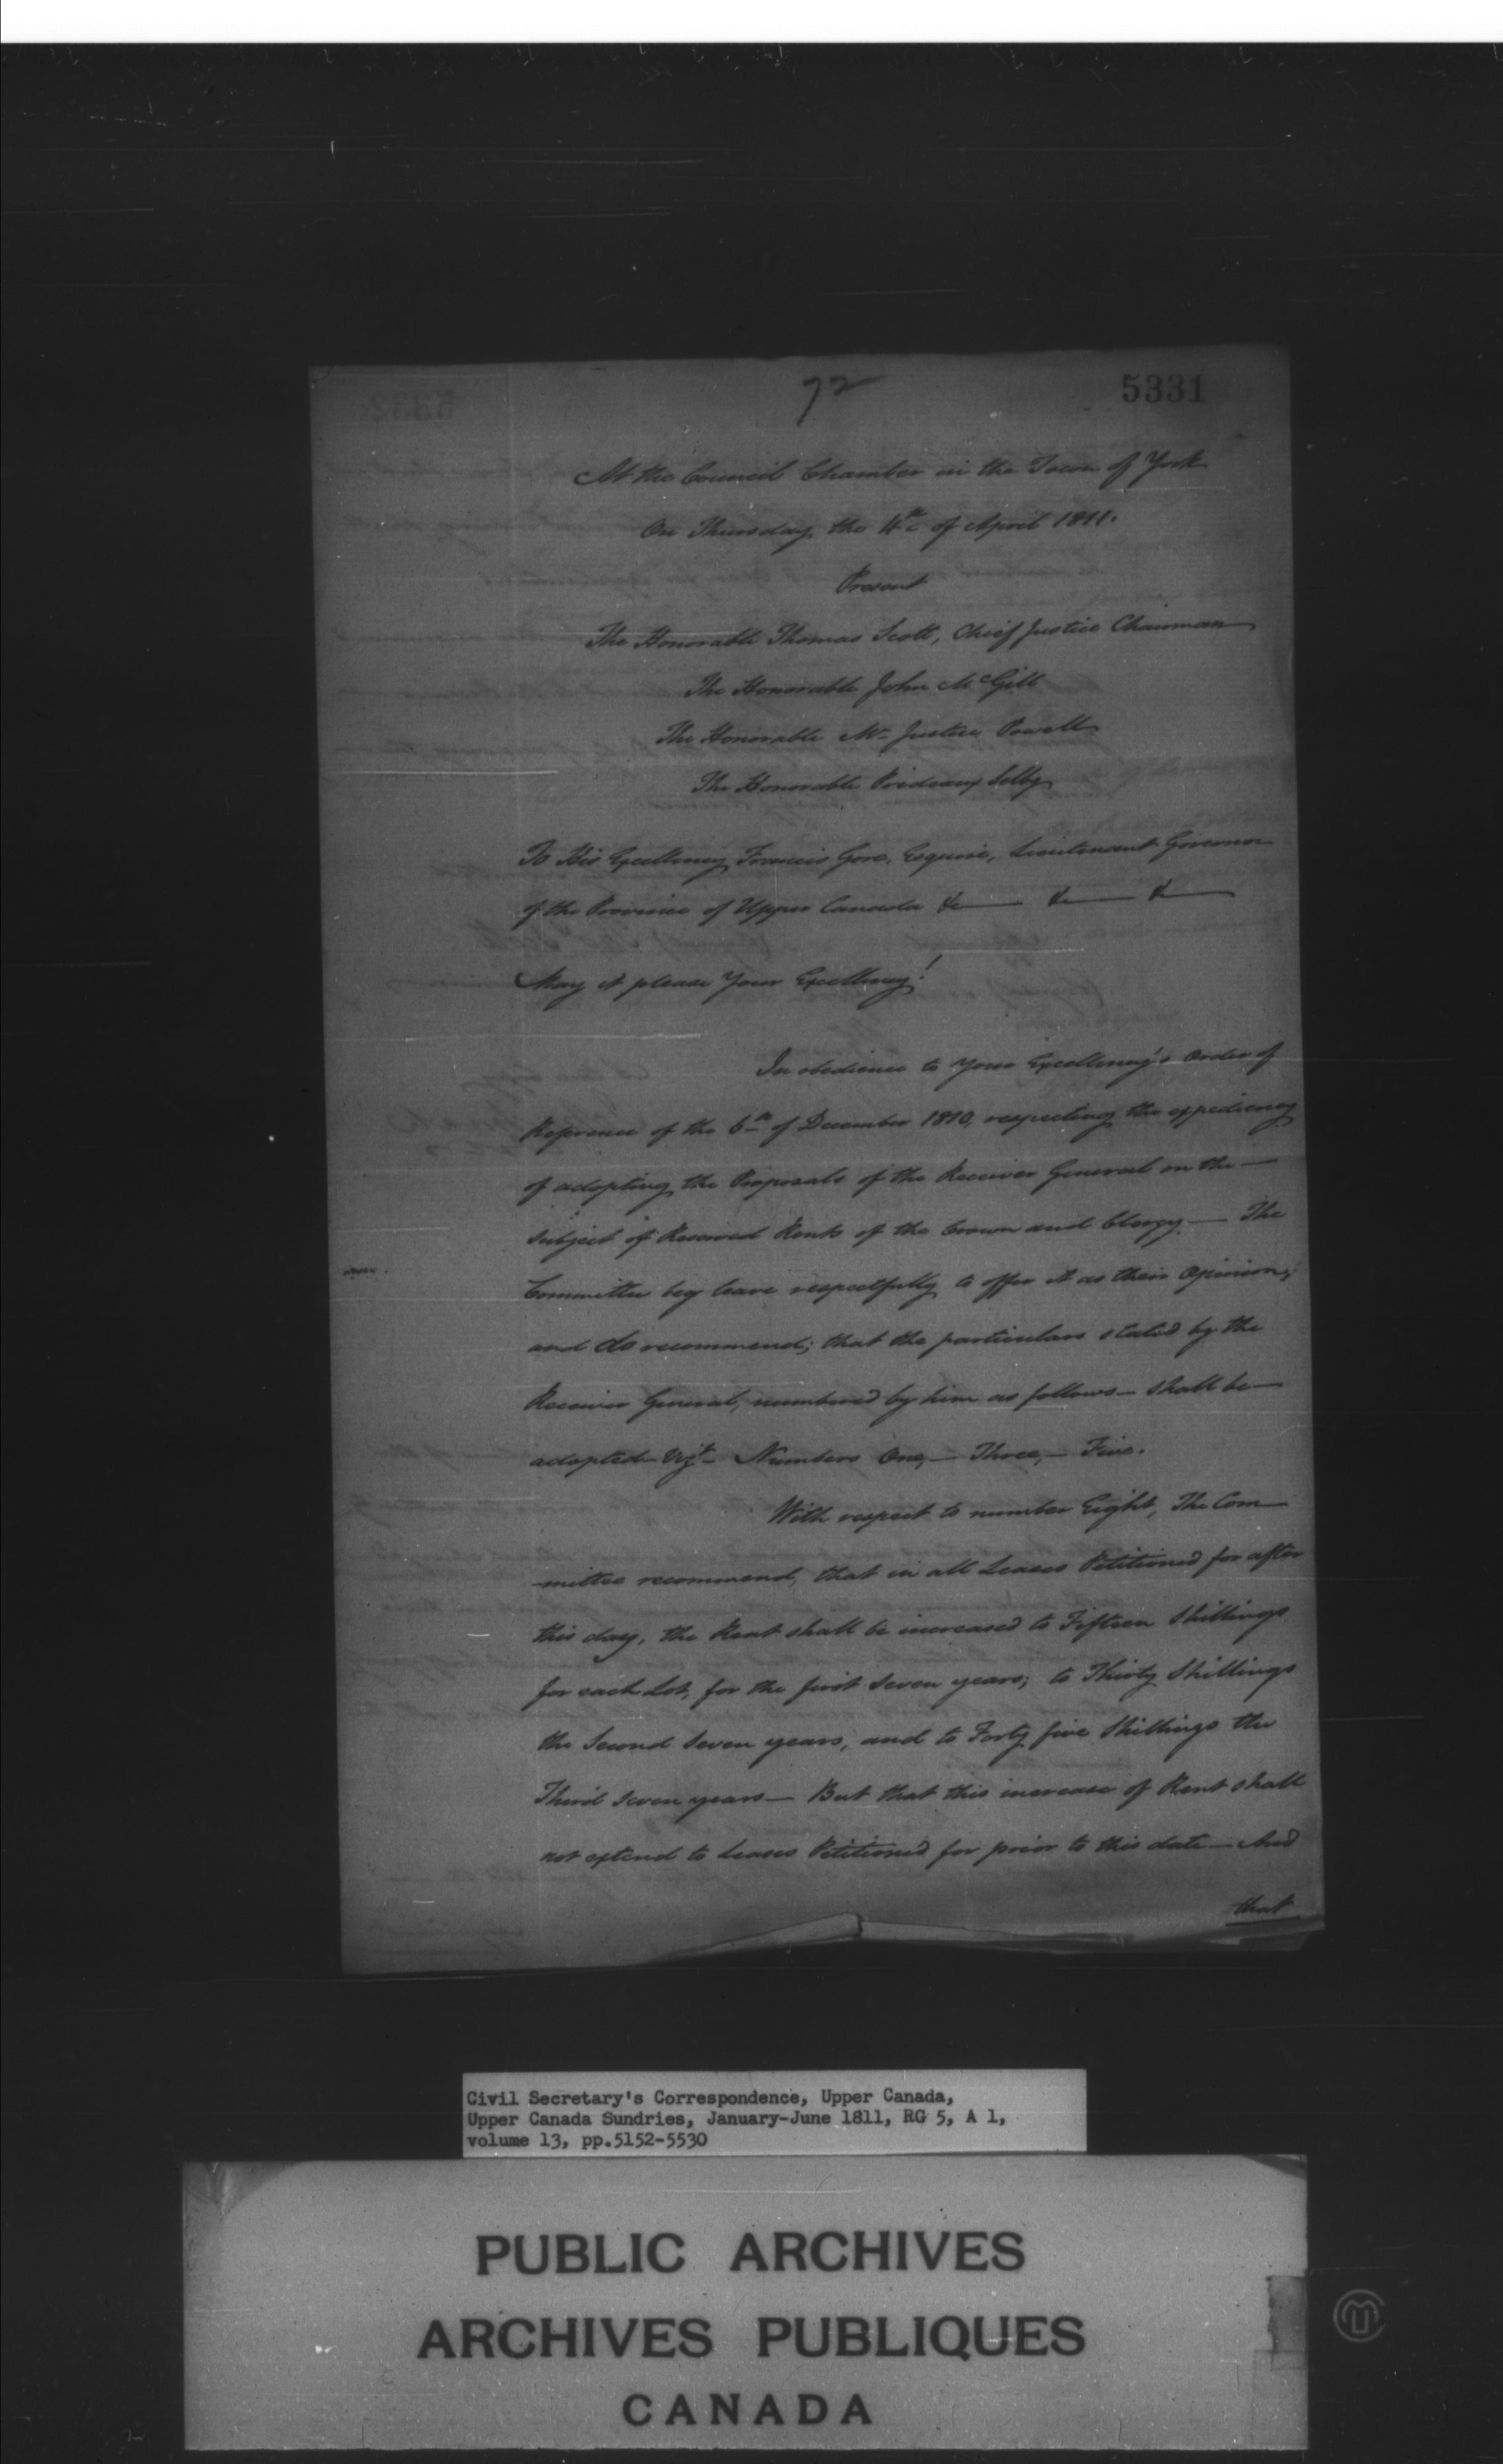 72
5331
At the Council Chamber in the Town of York
On Thursday the 4th of April 1811.
Present
The Honorable Thomas Scott, Chief Justice Chairman
The Honorable John McGill
The Honorable Mr Justice Powell
The Honorable Prideaux Selby
To His Excellency Francis Gore, Esquire, Lieutenant Governor
of the Province of Upper Canada &c — &c — &c —
May it please Your Excellency!
In obedience to Your Excellency's Order of
Reference of the 6th of December 1810, respecting the expediency
of adopting the Proposals of the Receiver General on the —
subject of Reserved Rents of the Crown and Clergy — The
Committee beg leave respectfully to offer it as their Opinion;
and do recommend; that the particulars stated by the
Receiver General, numbered by him as follows — shall be —
adopted Vizt — Numbers One, — Three, — Five.
With respect to number Eight, The Com—
—mittee recommend, that in all Leases Petitioned for after
this day, the Rent shall be increased to Fifteen Shillings
for each Lot, for the first Seven years; to Thirty Shillings
the Second Seven years, and to Forty five Shillings the
Third Seven years — But that this increase of Rent shall
not extend to Leases Petitioned for prior to this date — And
that
Civil Secretary's Correspondence, Upper Canada,
Upper Canada Sundries, January-June 1811, RG 5, A 1,
volume 13, pp.5152-5530
PUBLIC ARCHIVES
ARCHIVES PUBLIQUES
CANADA